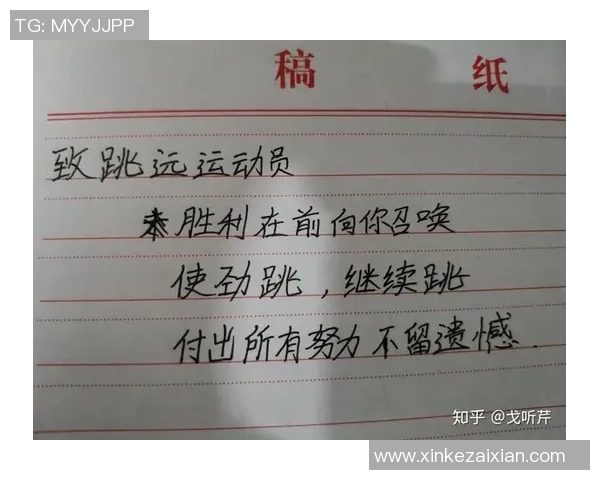 TG: MYYJJPP
稿 纸
致跳远运动员
胜利在前向你召唤
使劲跳，继续跳
付出所有努力不留遗憾.
知乎 @戈听芹
www.xinkezaixian.com